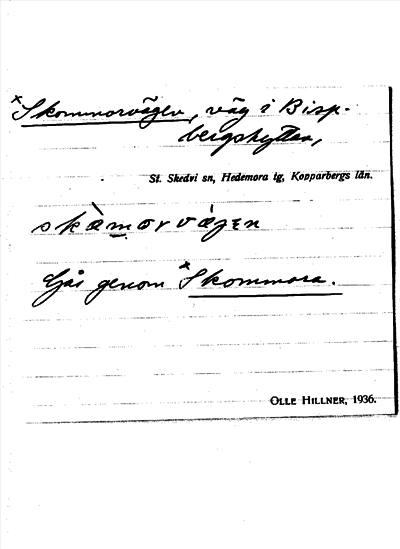 ×Skommorvägen, väg i Bisp-
bergshyttan,
St. Skedvi sn, Hedemora tg, Kopparbergs län.
Går genom ×Skommora.
OLLE HILLNER, 1936.